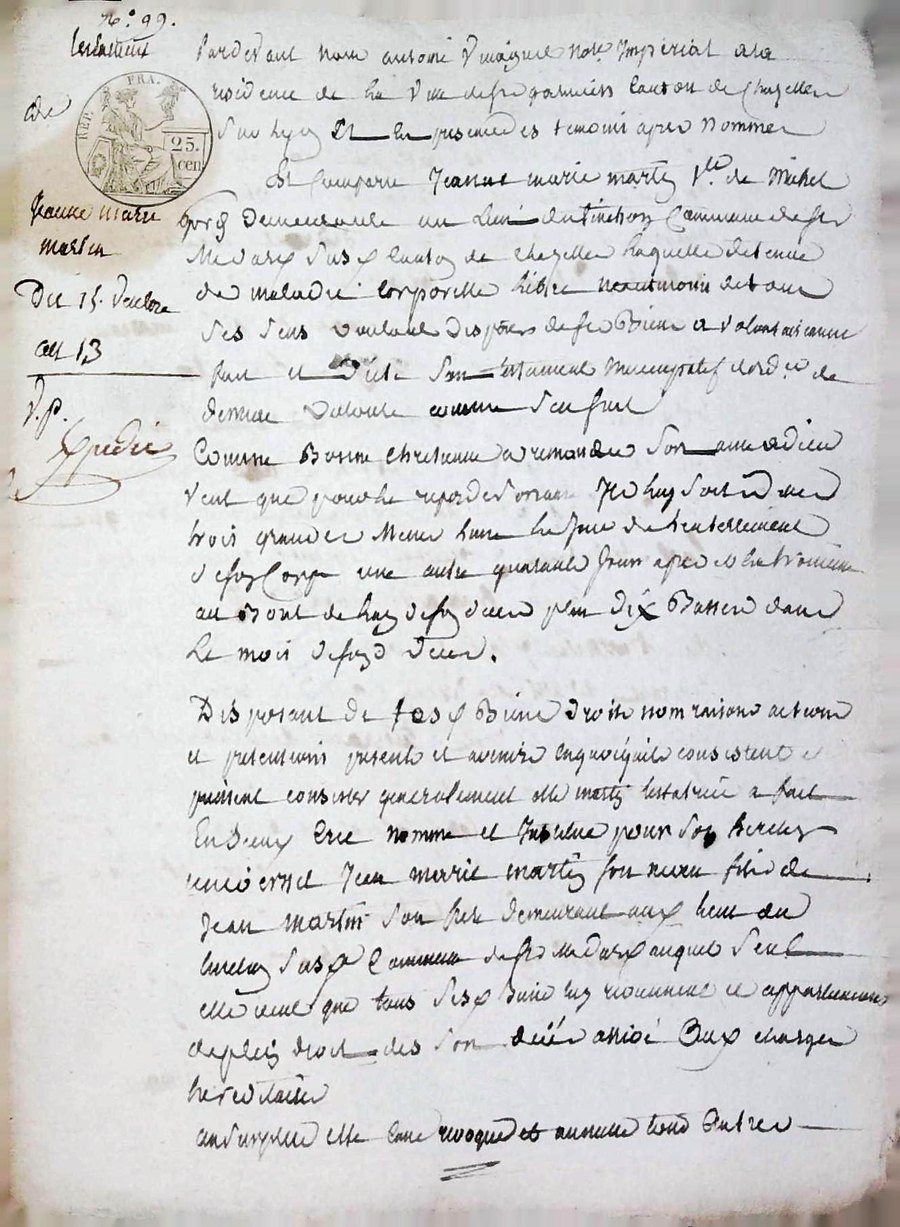 N.° 99.
testament
de
REP. FRA.
25.
cen
Jeanne marie
martin
Du 15. 
an 13
V.p.
Expedié
Pardevant nous antoine notr. Imperial ala
residence de la Ville de st galmier Canton de Chazelle
Sur Et En presence des temoins apres Nommes
Est Comparu Jeanne marie martin V.ve de Michel
Demeurante au Lieu Commune de st
Medard Susd Canton de Chazelle Laquelle detenue
de maladie Corporelle Libre neantmoins de tous
Ses Sens Voulant Disposer de ses Biens a volontairement
fait et Dicté Son testament Nuncupatif et ord.ce de
derniere Volonté comme Sensuit
Comme Bonne Chretienne a recomandé Son ame a dieu
veut que pour le repos de son ame Il luy Soit dit
trois grandes Messes Lune Le Jour de Lenterrement
de son Corps une autre quarante Jours apres et La troisieme
au Bout de Lan de son deces plus Dix Basses dans
Le mois de son deces.
Disposant de ses Biens Droits noms raisons actions
et pretentions presents et avenirs en quoi quils consistent et
puissent consister generalement elle martin testatrice a fait
Cree nomme et Institue pour Son heritier
universel Jean marie martin son neveu fils de
Jean martin Son frere demeurant aux lieu du
Susd Commune de st Medard auquel Seul
elle veut que tous Ses Biens luy reviennent et appartiennent
de plein droit des Son deces arrivé Aux charges
hereditaires
au Surplus elle Casse revoque et annulle tous Autres